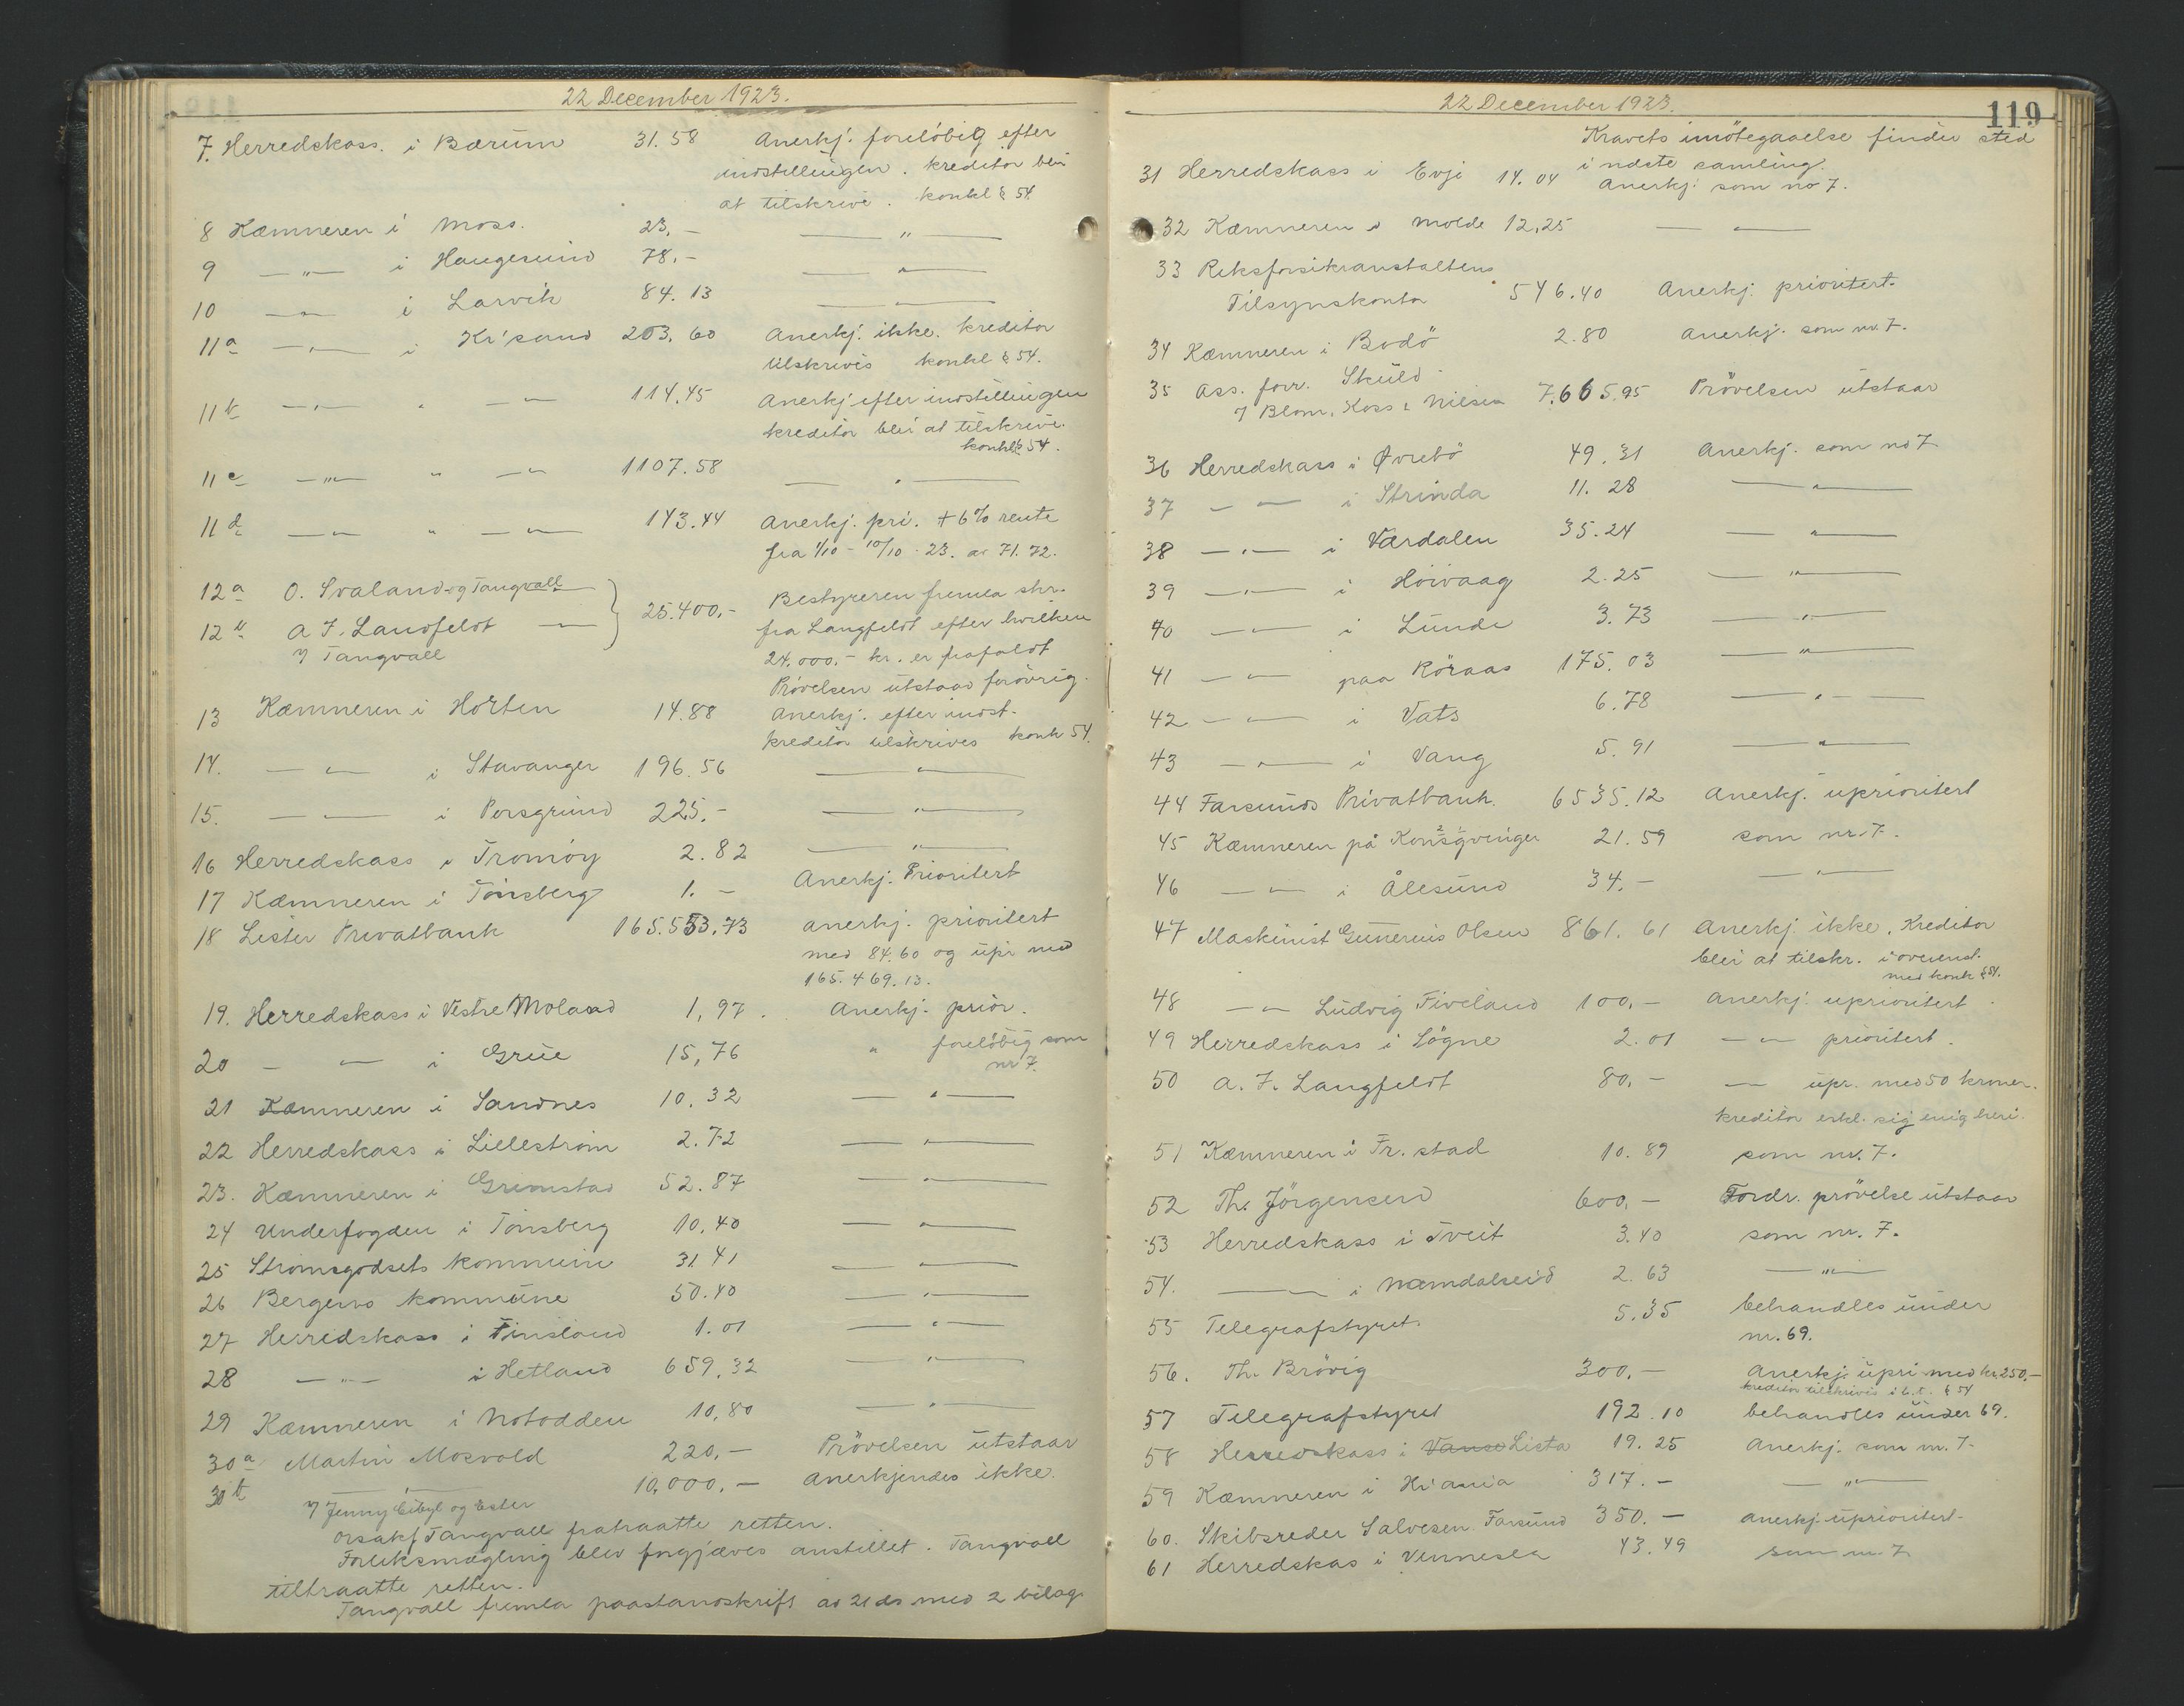 22 December 1923.
7. Herredskass. i Bærum 31.58 Anerkj. foreløbig efter
indstillingen. kreditor blir
at tilskrive. konkl § 54
8 Kæmneren i Moss. 23,- —„—
9 —„— i Haugesund 78.- —„—
10 —„— i Larvik 84.13 —„—
11a —„— i Kr'sand 203.60 Anerkj. ikke. kreditor
tilskrives konkl § 54.
11b —„— „ —„— 114.45 Anerkj efter indstillingen
kreditor blir at tilskrive.
konkl § 54.
11c —„— „ —„— 1107.58 —„—
11d —„— „ —„— 143.44 Anerkj. pri. + 6% rente
fra 1/10 - 10/10 - 23. av 71.72.
12a O. Svaland og Tangvall
12b A F. Langfeldt —„— 25.400,- Bestyreren fremla skr.
fra Langfeldt efter hvilken
7 Tangvall 24.000.- kr. er frafaldt
Prövelsen utstaar forövrig.
13 Kæmneren i Horten 14.88 Anerkj. efter indst.
kreditor tilskrives konk 54.
14. —„— i Stavanger 196.56 —„—
15. —„— i Porsgrund 225.- —„—
16 Herredskass i Tromöy 2.82 —„—
17 Kæmneren i Tönsberg 1.- Anerkj. Prioritert
18 Lister Privatbank 165.553,73 anerkj. prioritert
med 84.60 og upr med
165.469.13.
19. Herredskass i Vestre Moland 1,97. Anerkj. prior.
20 — — i Grue 15,76 „ foreløbig som
nr 7.
21 Kæmneren i Sandnes 10.32 —„—
22 Herredskass i Lilleström 2.72 —„—
23. Kæmneren i Grimstad 52.87 —„—
24 Underfogden i Tönsberg 10.40 —„—
25 Strömsgodsets kommune 31.41 —„—
26 Bergens kommune 50.40 —„—
27 Herredskass i Finsland 1.01 —„—
28 —„— i Hetland 659,32 —„—
29 Kæmneren i Notodden 10,80 —„—
30a Martin Mosvold 220,- Prövelsen utstaar
30b —„— 10,000.- anerkjendes ikke.
7 Jenny Eibye og Ester
orsakf Tangvall fratraatte retten.
Forliksmægling blev forgjæves anstillet. Tangvall
tiltraatte retten.
Tangvall fremla paastandskrift av 21 ds med 2 bilag
119
22 December 1923.
Kravets imötegaaelse finder sted
i næste samling.
31 Herredskass i Evje 14.04 Anerkj. som no 7.
32 Kæmneren i Molde 12,25 —„—
33 Riksforsikranstaltens
Tilsynskontor 546.40 Anerkj. prioritert.
34 Kæmneren i Bodö 2.80 Anerkj. som nr. 7.
35 Ass. forr. Skuld
7 Blom, Koss & Nilsen 7,665.95 Prövelsen utstaar
36 Herredskass i Øvrebö 49.31 Anerkj. som no 7
37 —„— i Strinda 11.28 —„—
38 —„— i Værdalen 35.24 —„—
39 —„— i Höivaag 2.25 —„—
40 —„— i Lunde 3.73 —„—
41 —„— paa Röraas 175.03 —„—
42 —„— i Vats 6.78 —„—
43 —„— i Vang 5.91 —„—
44 Farsunds Privatbank. 6535.12 Anerkj. uprioritert
45 Kæmneren på Konsgvinger 21.59 som nr. 7.
46 —„— i Ålesund 34.- —„—
47 Maskinist Gunerius Olsen 861.61 Anerkj. ikke. Kreditor
blir at tilskr. i overenst.
med konk § 54.
48 —„— Ludvig Fiveland 100,- Anerkj. uprioritert.
49 Herredskass i Sögne 2.01 —„— prioritert.
50 A. F. Langfeldt 80,- —„— upr. med 50 kroner.
kreditor erkl. sig enig heri.
51 Kæmneren i Fr. stad 10.89 som nr. 7.
52 Th. Jörgensen 600,- Fordr. prövelse utstaar
53 Herredskass i Tveit 3.40 som nr. 7.
54. —„— i Namdalseid 2.63 —„—
55 Telegrafstyret. 5.35 behandles under
nr. 69.
56. Th. Brövig 300,- Anerkj. upri med kr. 250.-
kreditor tilskrives i h.t. § 54
57 Telegrafstyret 192.10 behandles under 69.
58 Herredskass i Vanse Lista 19.25 Anerkj. som nr. 7.
59 Kæmneren i Kr'ania 317.- —„—
60. Skibsreder Salvesen Farsund 350.- anerkj uprioritert.
61 Herredskas i Vennesla 43.49 som nr. 7